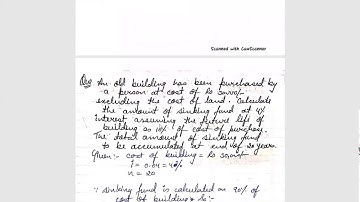 Scanned with CamScanner
Que An old building has been purchased by
a person at cost of Rs 30,000/-
excluding the cost of land. Calculate
the amount of sinking fund at 4%
interest assuming the future life of
building as 10% of cost of purchase.
The total amount of sinking fund
to be accumulated at end of 20 years.
Given:- cost of building = Rs 30,000/-
i = 0.04 = 4%
n = 20
∵ sinking fund is calculated on 90% of
cost of building & So:-